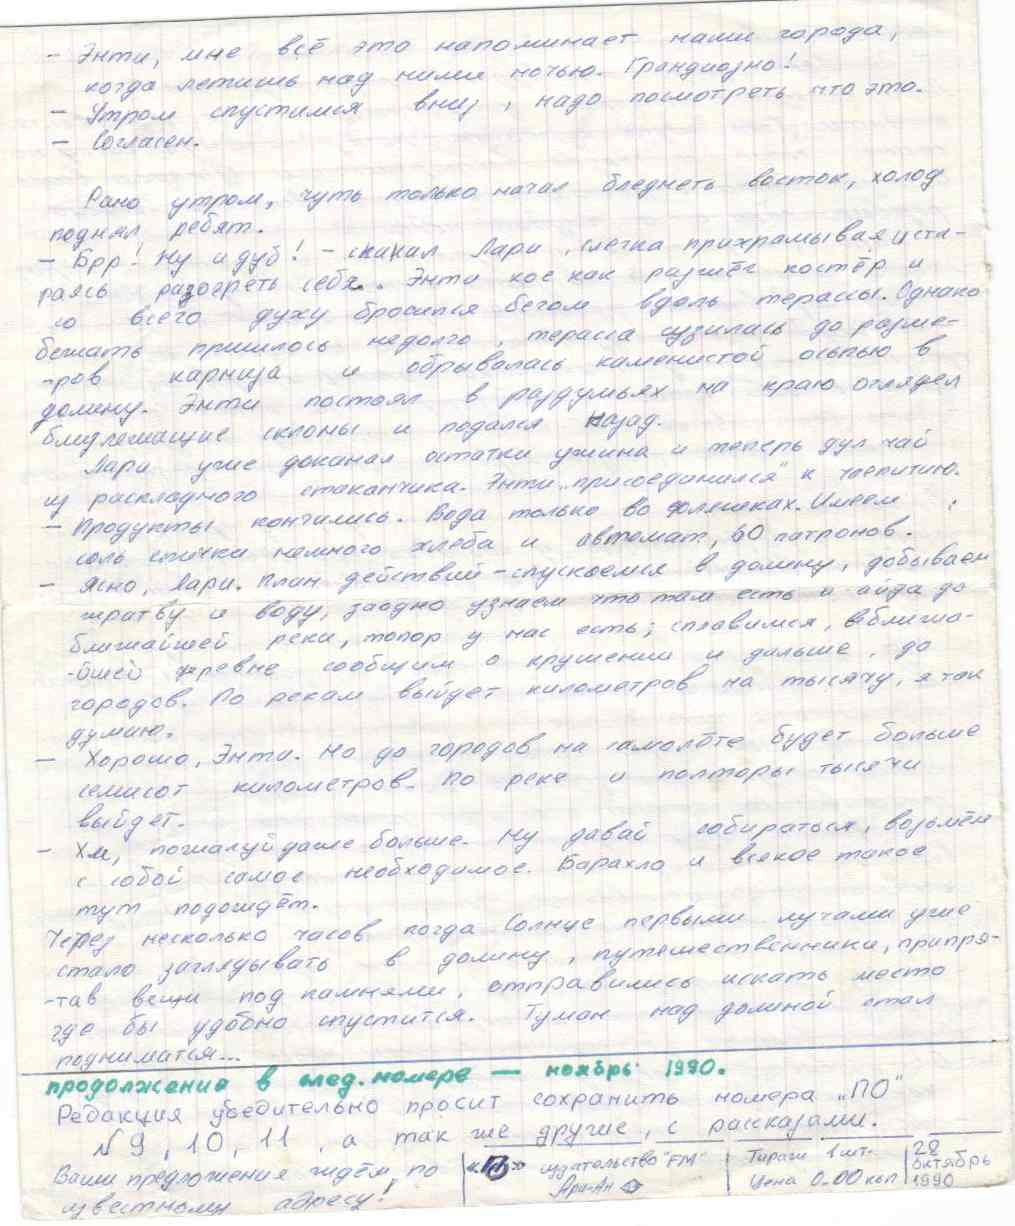 - Энти, мне всё это напоминает наши города,
когда летишь над ними ночью. Грандиозно!
- Утром спустимся вниз, надо посмотреть что это.
- Согласен.
Рано утром, чуть только начал бледнеть восток, холод
поднял ребят.
- Брр! Ну и дуб! - скакал Лари, слегка прихрамывая и ста-
раясь разогреть себя. Энти кое как разжёг костёр и
со всего духу бросился бегом вдоль терассы. Однако
бежать пришлось недолго, терасса сузилась до разме-
-ров карниза и обрывалась каменистой осыпью в
долину. Энти постоял в раздумьях на краю оглядел
близлежащие склоны и подался назад.
Лари уже доканал остатки ужина и теперь дул чай
из раскладного стаканчика. Энти „присоединился" к чаепитию.
- Продукты кончились. Вода только во фляжках. Имеем :
соль спички немного хлеба и автомат, 60 патронов.
- Ясно, Лари. План действий - спускаемся в долину, добываем
жратву и воду, заодно узнаем что там есть и айда до
ближайшей реки, топор у нас есть; сплавимся, в ближа-
-йшей деревне сообщим о крушении и дальше, до
городов. По рекам выйдет километров на тысячу, я так
думаю.
- Хорошо, Энти. Но до городов на самолёте будет больше
семисот километров. По реке и полторы тысячи
выйдет.
- Хм, пожалуй даже больше. Ну давай собираться, возьмём
с собой самое необходимое. Барахло и всякое такое
тут подождёт.
Через несколько часов когда Солнце первыми лучами уже
стало заглядывать в долину, путешественники, припря-
-тав вещи под камнями, отправились искать место
где бы удобно спустится. Туман над долиной стал
подниматся...
продолжение в след. номере — ноябрь 1990.
Редакция убедительно просит сохранить номера „ПО"
N 9, 10, 11, а так же другие, с рассказами.
Ваши предложения ждём по
известному адресу!
издательство "FM"
Ари-Ан
Тираж 1 шт.
Цена 0.00 коп
28
октябрь
1990